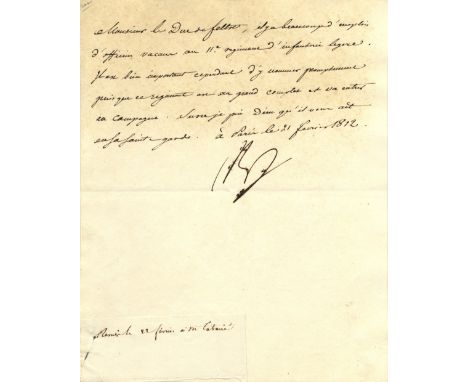 Monsieur le Duc de feltre, il y a beaucoup d'emplois
d'officiers vacans au 11.e regiment d'infanterie legere.
Il est bien important cependant d'y nommer promptement
puisque ce regiment est au grand complet et va entrer
en campagne. Sur ce je prie Dieu qu'il vous ait
en sa sainte garde. à Paris le 21 fevrier 1812.
Renvoyé le 22 fevrier a m